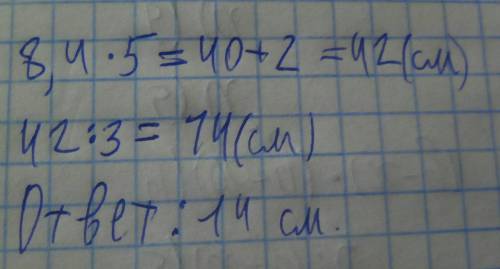 8,4 · 5 = 40+2 = 42(см)
42:3 = 14(см)
Ответ: 14 см.